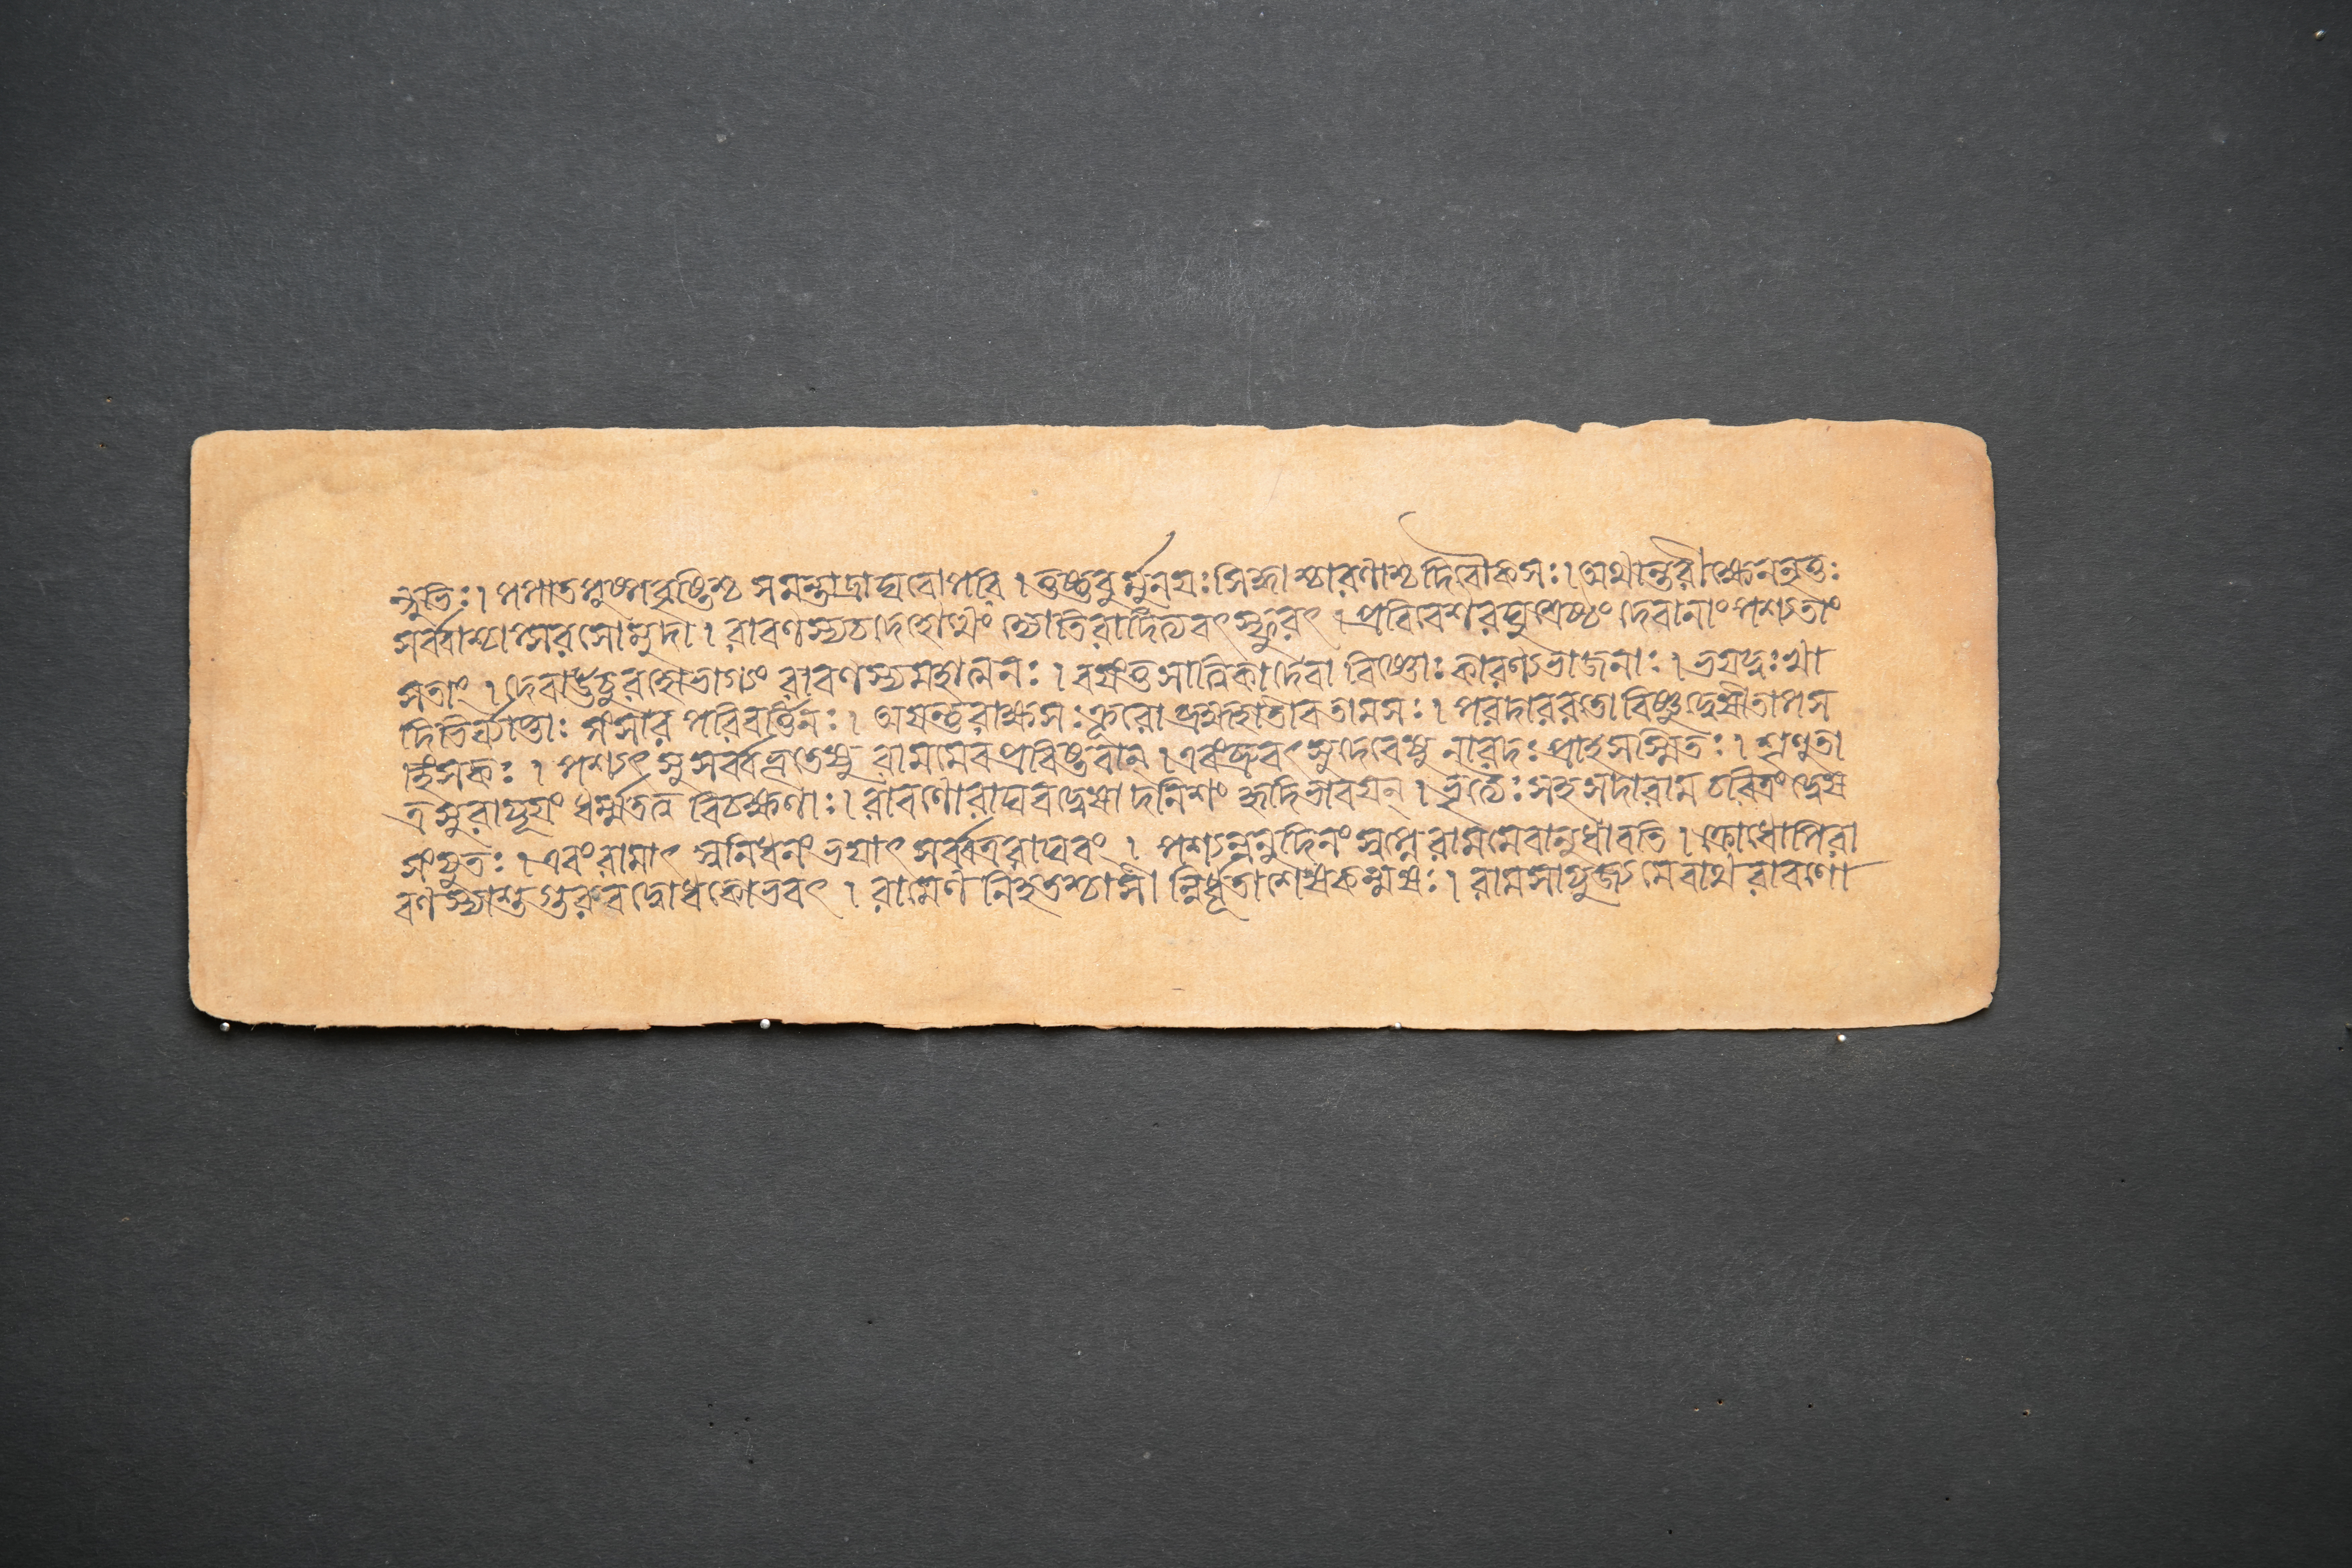 ন্দুভিঃ। পপাত পুষ্পবৃষ্টিশ্চ সমন্তাদ্রাঘবোপরি । তুষ্টুবুর্ম্মুনয়ঃ সিদ্ধাশ্চারণাশ্চ দিবৌকসঃ । অথান্তরীক্ষে ননৃতুঃ
সর্ব্বাশ্চাপ্সরসো মুদা । রাবণস্য চ দেহোত্থং জ্যোতিরাদিত্যবৎ স্ফুরৎ । প্রবিবেশ রঘুশ্রেষ্ঠং দেবানাং পশ্যতাং
সতাং । দেবা ঊচুরহো ভাগ্যং রাবণস্য মহাত্মনঃ । বয়ন্তু সাত্ত্বিকা দেবা বিষ্ণোঃ কারণ্যভাজনাঃ । ভয়দুঃখা
দিভির্ব্যাপ্তাঃ সংসার পরিবর্ত্তিনঃ । অয়ন্তু রাক্ষসঃ ক্রূরো ব্রহ্মহাতীব তামসঃ । পরদাররতো বিষ্ণুদ্বেষী তাপস
হিংসকঃ । পশ্যৎসু সর্ব্বভূতেষু রামমেব প্রবিষ্টবান্ । এবং ব্রুবৎসু দেবেষু নারদঃ প্রাহ সস্মিতঃ । শৃণুতা
ত্র সুরা যূয়ং ধর্ম্মতত্ত্ব বিচক্ষণাঃ । রাবণো রাঘবদ্বেষাদনিশং হৃদি ভাবয়ন্ । ভৃত্যৈঃ সহ সদা রাম চরিত্রং দ্বেষ
সংযুতঃ । এবং রামাৎ স্বনিধনং ভয়াৎ সর্ব্বত্র রাঘবং । পশ্যন্ননুদিনং স্বপ্নে রামমেবানুধাবতি । ক্রোধোপি রা
বণস্যাশু গুরুবদ্বোধকোভবৎ । রামেণ নিহতশ্চাসৌ নির্ধূতাশেষকল্মষঃ । রামসাযুজ্যমেবাথ রাবণো